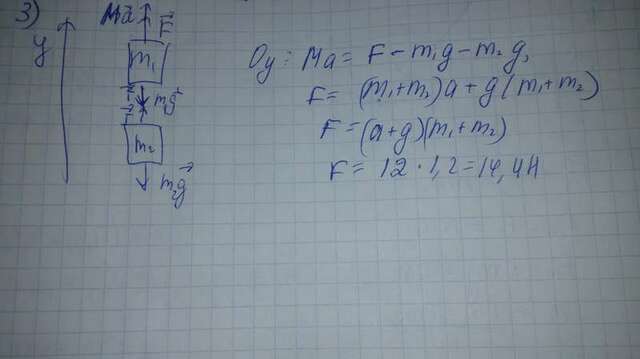 3)
Ma⃗
F⃗
y
m₁
T⃗
m₁g⃗
T⃗
m₂
m₂g⃗
Oy: Ma = F - m₁g - m₂g,
F = (m₁+m₂)a + g(m₁+m₂)
F = (a+g)(m₁+m₂)
F = 12 · 1,2 = 14,4Н